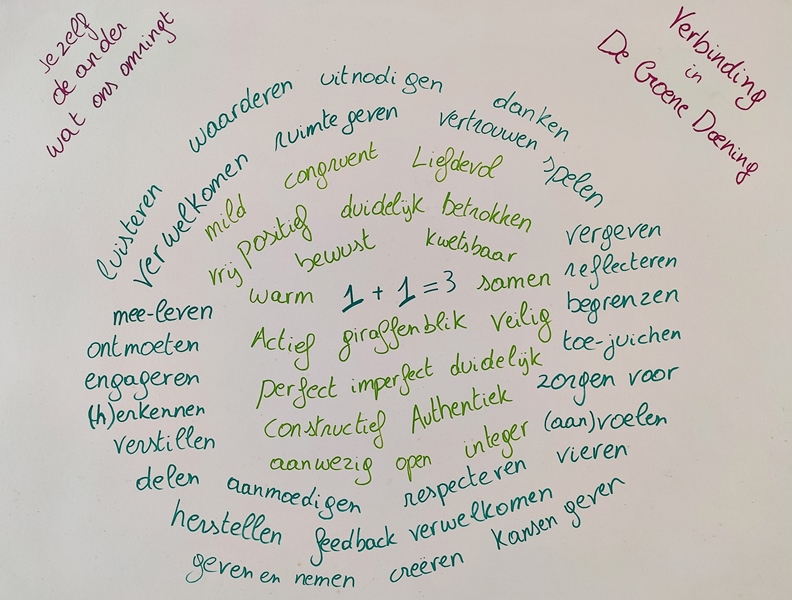 jezelf
de ander
wat ons omringt
Verbinding
in
De Groene Dæning
waarderen uitnodigen danken
luisteren verwelkomen ruimte geven vertrouwen spelen
mild congruent Liefdevol
vrij positief duidelijk betrokken vergeven
bewust kwetsbaar reflecteren
warm 1 + 1 = 3 samen begrenzen
mee-leven
Actief giraffenblik veilig toe-juichen
ontmoeten
perfect imperfect duidelijk zorgen voor
engageren
(h)erkennen constructief Authentiek (aan)voelen
verstillen aanwezig open integer vieren
delen aanmoedigen respecteren
herstellen feedback verwelkomen kansen geven
geven en nemen creëren